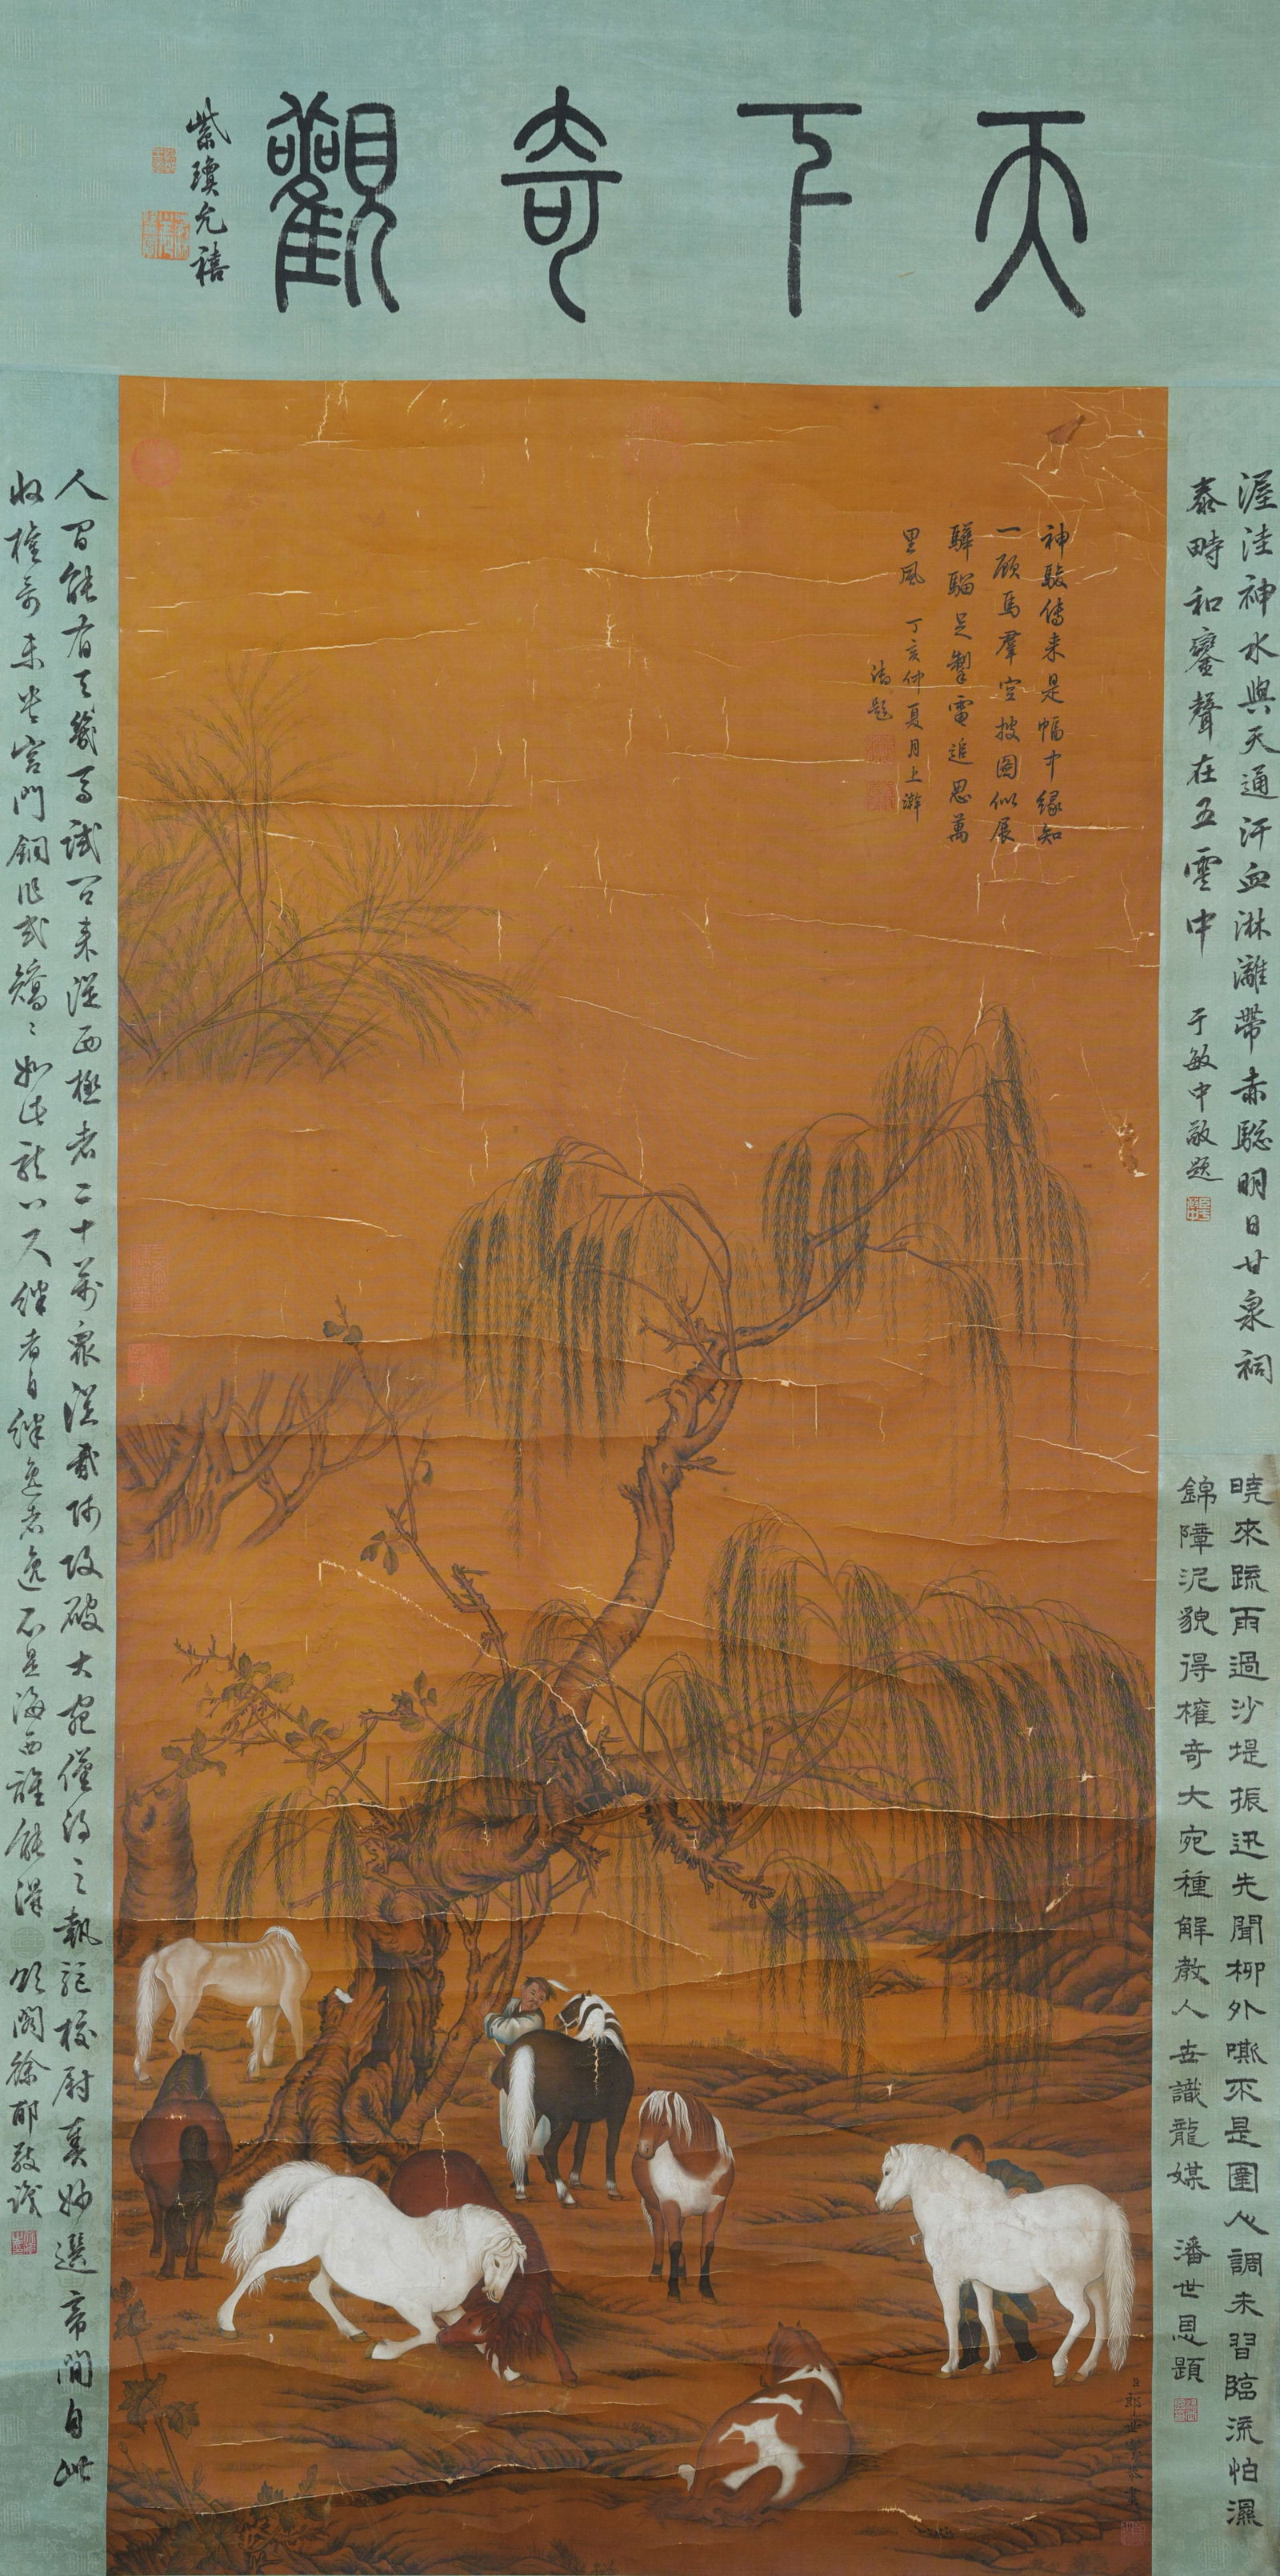 天下奇觀
紫瓊允禧
神駿傳來是幅中緣知
一顧馬羣空披圖似展
驊騮足掣電追思萬
里風 丁亥仲夏月上澣
御題
渥洼神水與天通汗血淋灕帶赤驄明日甘泉祠
泰畤和鑾聲在五雲中 于敏中敬題
曉來疏雨過沙堤振迅先聞柳外嘶不是圉心調未習臨流怕濕
錦障泥貌得權奇大宛種解教人世識龍媒 潘世恩題
人間能有天幾馬試問來從西極者二十萬眾從貳師攻破大宛僅得之執驅校尉真妙選帝閑自此
收權奇未央宮門銅作式矯矯如此龍八尺絆者自絆逸者逸不是海西誰能得 徐郙敬識
臣郎世寧恭畫